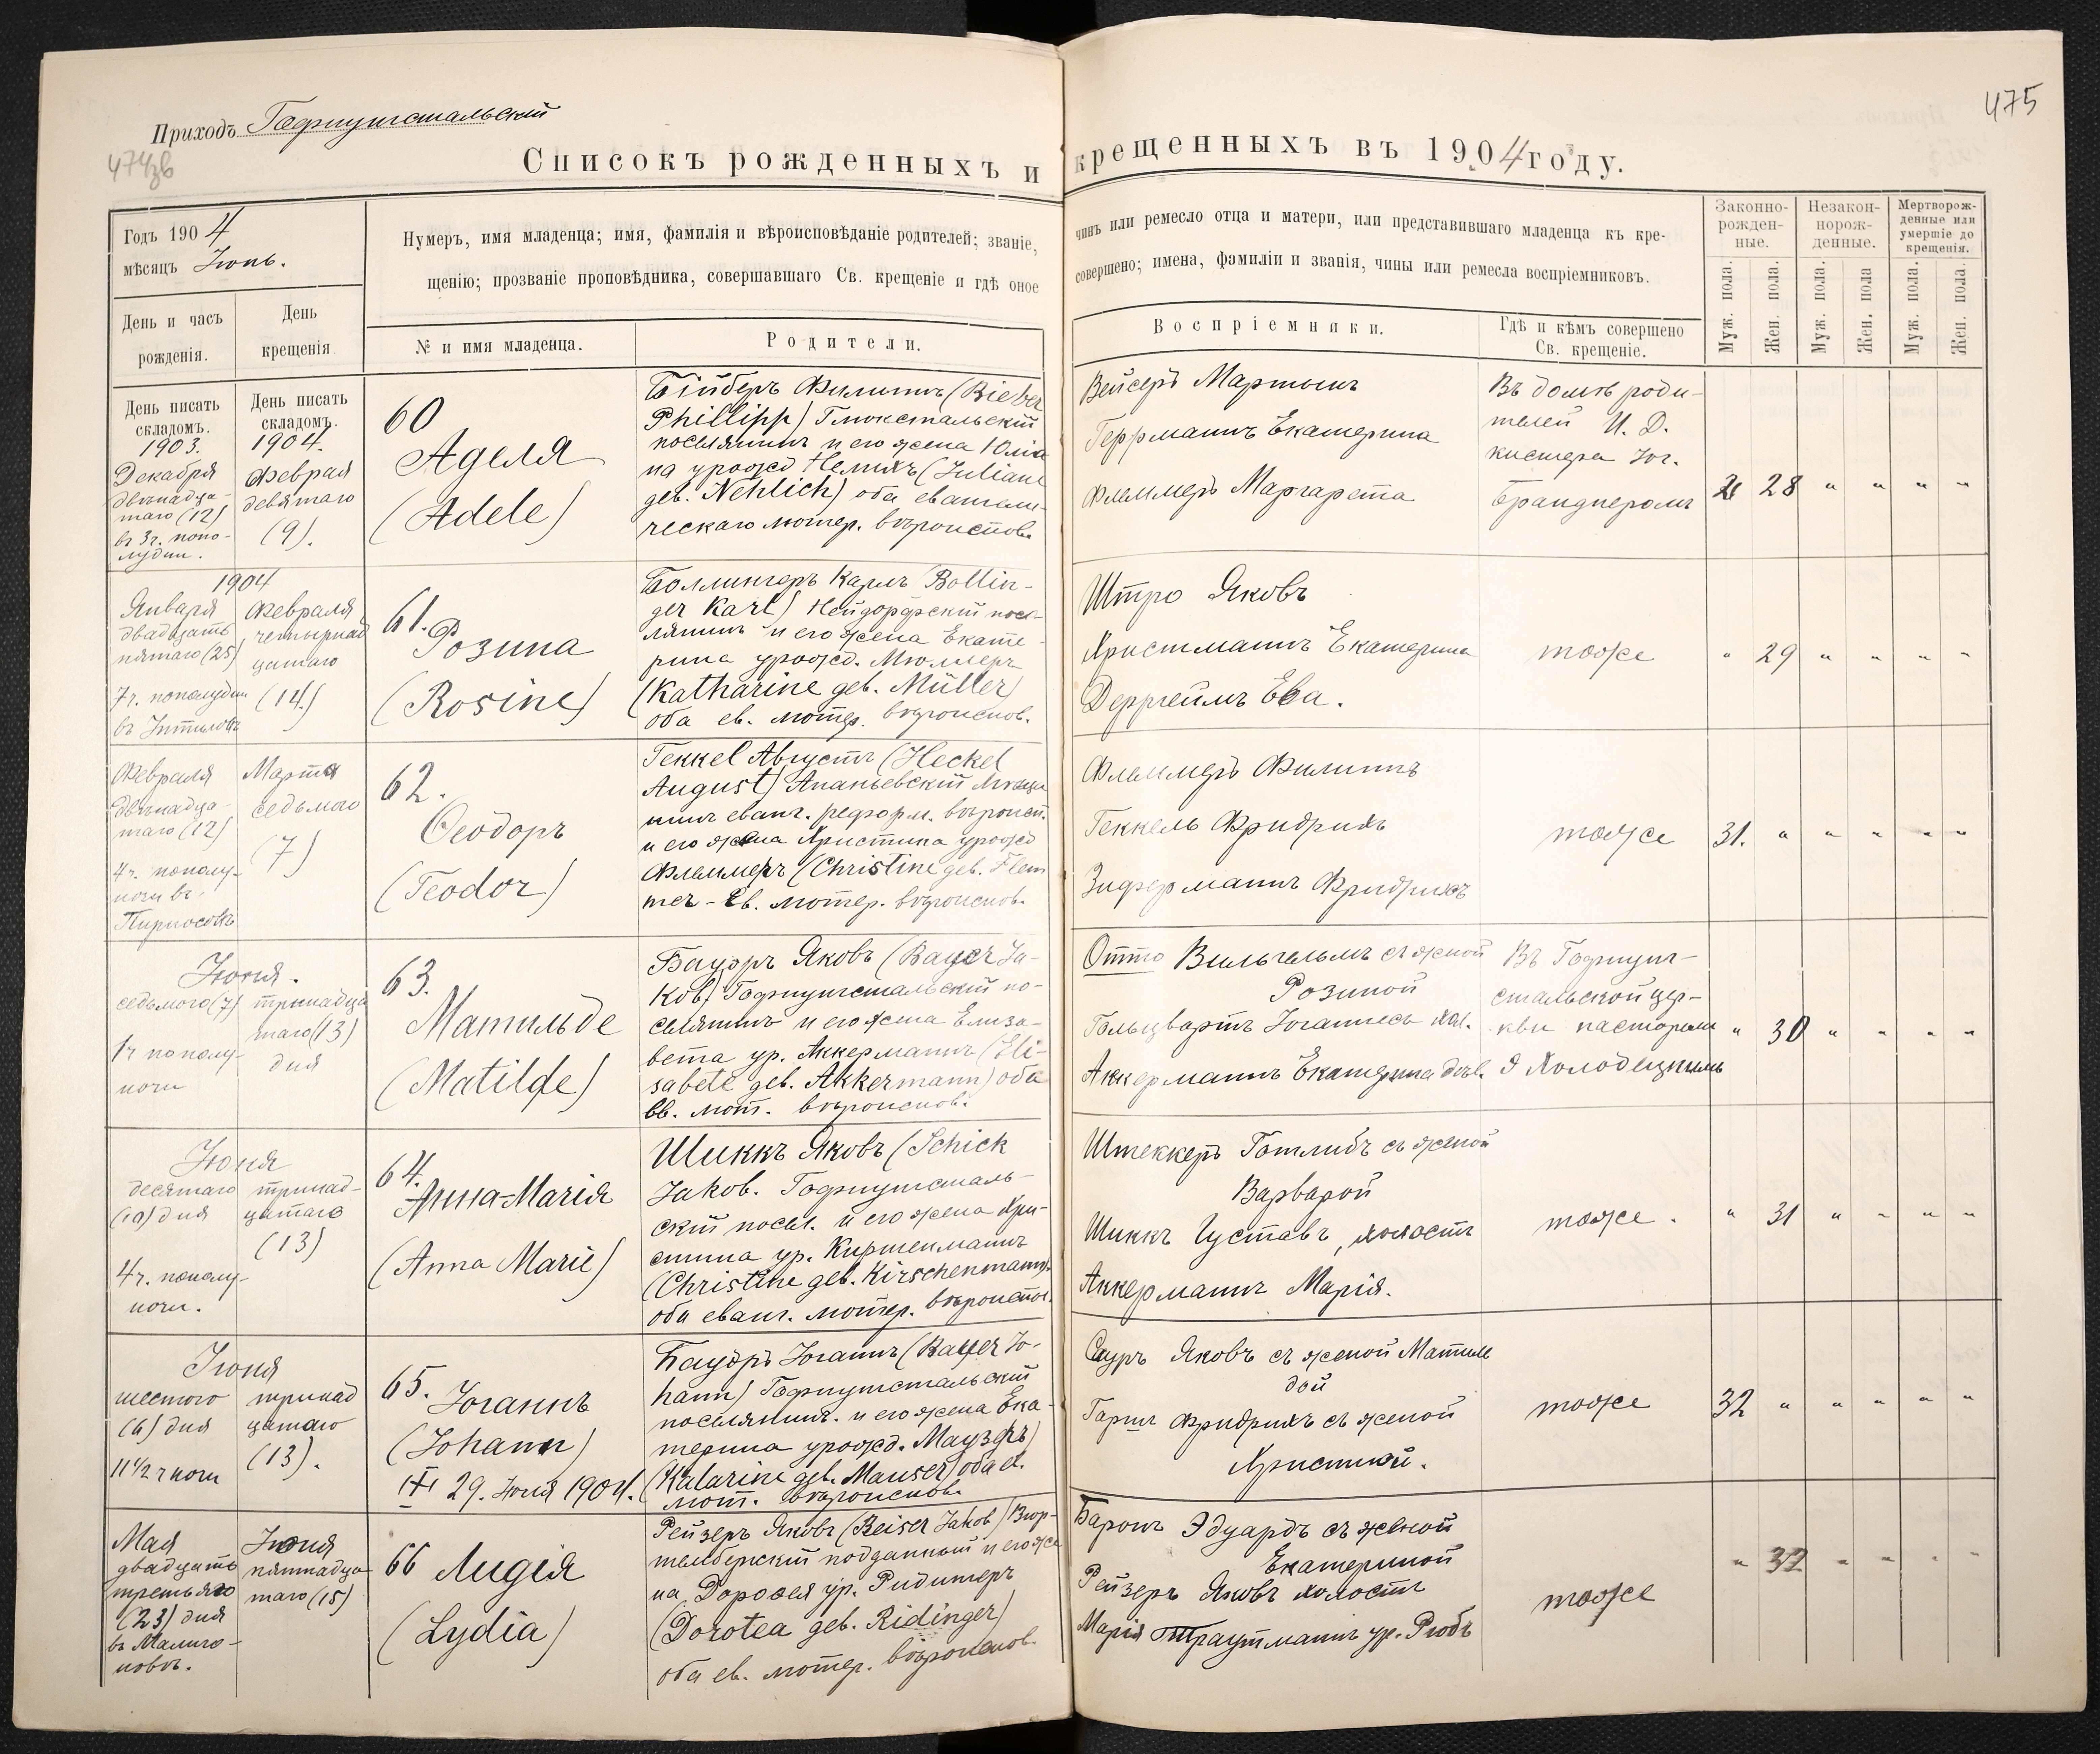 475
Приходъ Гофнунгстальскій
474зв
Списокъ рожденныхъ и крещенныхъ въ 1904 году.
Годъ 1904
мѣсяцъ Іюнь.
Нумеръ, имя младенца; имя, фамилія и вѣроисповѣданіе родителей; званіе,
чинъ или ремесло отца и матери, или представившаго младенца къ кре-
щенію; прозваніе проповѣдника, совершавшаго Св. крещеніе и гдѣ оное
совершено; имена, фамиліи и званія, чины или ремесла воспріемниковъ.
Законно-
рожден-
ные.
Незакон-
норож-
денные.
Мертворож-
денные или
умершіе до
крещенія.
День и часъ
рожденія.
День
крещенія
№ и имя младенца.
Родители.
Воспріемники.
Гдѣ и кѣмъ совершено
Св. крещеніе.
Муж. пола.
Жен. пола.
Муж. пола.
Жен. пола
Муж. пола.
Жен. пола.
День писать
складомъ.
1903.
Декабря
двѣнадца-
таго (12)
въ 3ч. попо-
лудни.
День писать
складомъ.
1904.
Феврал
девятаго
(9).
60
Аделя
(Adele)
Бійберъ Филиппъ (Bieber
Phillipp) Глюкстальскій
поселянинъ и его жена Юліа
на урожд Нелихъ (Juliane
геб. Nehlich) оба евангели-
ческаго лютер. вѣроисповѣ.
Вейсеръ Мартынъ
Геррманнъ Екатерина
Флеммеръ Маргарета
Въ домѣ роди-
телей И. Д.
кистера Іог.
Бранднеромъ
28 " " " "
1904
Января
двадцать
пятаго (25)
7ч. пополудни
въ
Февраля
четырнад
цатаго
(14.)
61.
Розина
(Rosine)
Боллингеръ Карлъ (Bollin-
ger Karl) Нейдорфскій посе-
лянинъ и его жена Екате-
рина урожд. Мюллеръ
(Katharine geb. Müller)
оба ев. лютер. вѣроиспов.
Штро Яковъ
Христманнъ Екатерина
Ева.
тоже
" 29 " " " "
Февраля
двѣнадца-
таго (12)
4ч. пополу-
ночи въ
Марта
седьмого
(7)
62.
Ѳеодоръ
(Teodor)
Геккеl Августъ (Heckel
August) Ананьевскій мѣща
нинъ еванг. реформ. вѣроисп.
и его жена Христина урожд
Флеммеръ (Christine geb. Flem
mer - Ев. лютер. вѣроиспов.
Флеммеръ Филиппъ
Геккель Фридрихъ
Фридрихъ
тоже
31. " " " " "
Іюня.
седьмого (7)
1ч пополу-
ночи
тринадца
таго (13)
дня
63.
Матильде
(Matilde)
Бауэръ Яковъ (Bayer Ja-
kob) Гофнунгстальскій по-
селянинъ и его жена Елиза-
вета ур. Аккерманнъ (Eli-
sabete geb. Akkermann) оба
ев. лют. вѣроиспов.
Отто Вильгельмъ съ женой
Розиной
Гольцвартъ Іоганнесъ хол.
Аккерманнъ Екатерина дѣв.
Въ Гофнунг-
стальской цер-
кви пасторомъ
Холодецкимъ
" 30 " " " "
Іюня
десятаго
(10) дня
4ч. пополу-
ночи.
тринад-
цатаго
(13)
64.
Анна-Марія
(Anna Marie)
Шиккъ Яковъ (Schick
Jakob. Гофнунгсталь-
скій посел. и его жена Хри-
стина ур. Киршенманнъ
(Christine geb. Kirschenmann).
оба еванг. лютер. вѣроиспов.
Штеккеръ Готлибъ съ женой
Варварой
Шиккъ Густавъ, холостъ
Аккерманнъ Марія.
тоже.
" 31 " " " "
Іюня
шестого
(6) дня
11 1/2 ч ночи
тринад
цатаго
(13).
65.
Іоганнъ
(Johann)
29. Іюля 1904.
Бауэръ Іоганнъ (Bayer Jo-
hann) Гофнунгстальскій
поселянинъ. и его жена Ека-
терина урожд. Маузеръ)
(Katarine geb. Mauser) оба ев.
лют. вѣроиспов.
Сауръ Яковъ съ женой Матиль
дой
Фридрихъ съ женой
Христиной.
тоже
32 " " " " "
Мая
двадцать
третьяго
(23) дня
въ Малиго-
новѣ.
Іюня
пятнадца
таго (15)
66 Лидія
(Lydia)
Рейзеръ Яковъ (Reiser Jakob) Вюр-
тембергскій подданный и его же
на Доротея ур. Ридингеръ
(Dorotea geb. Ridinger)
оба ев. лютер. вѣроиспов.
Баронъ Эдуардъ съ женой
Екатериной
Рейзеръ Яковъ холостъ
Марія Траутманнъ ур. Рюбъ
тоже
" 32 " " " "